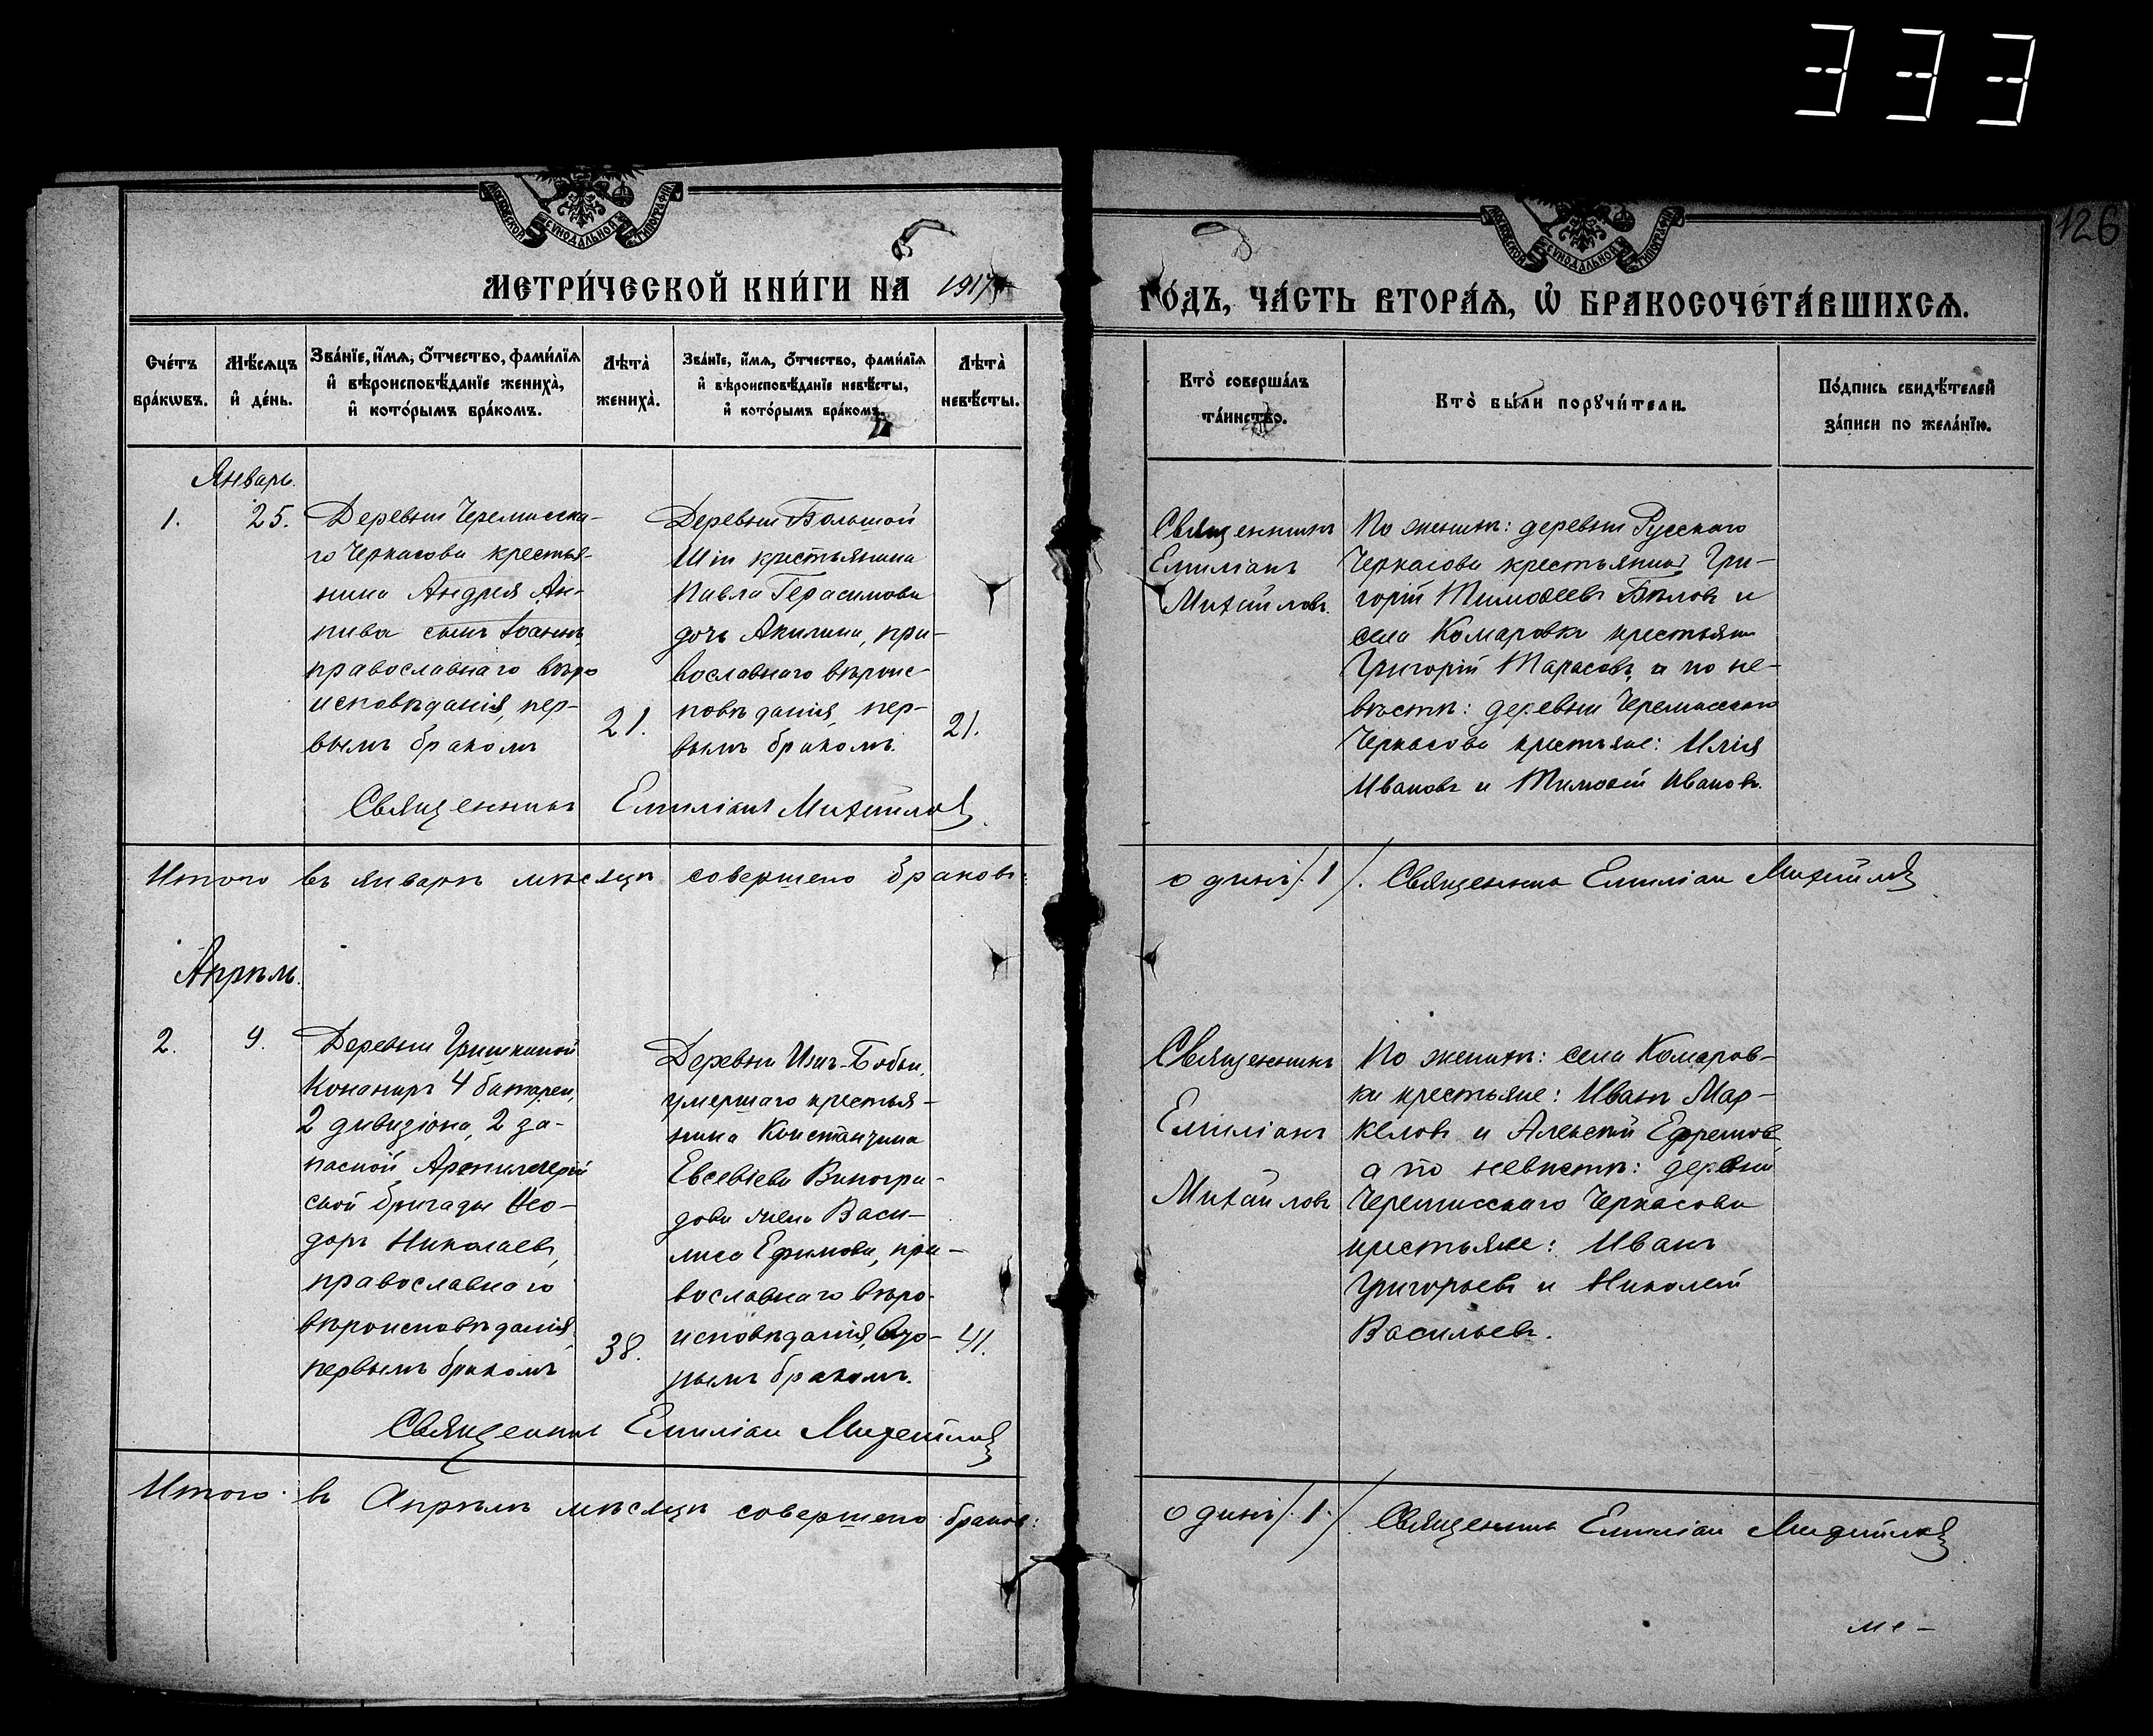 333
126
МОСКОВСКОЙ СѴНОДАЛЬНОЙ ТИПОГРАФІИ
МОСКОВСКОЙ СѴНОДАЛЬНОЙ ТИПОГРАФІИ
МЕТРИ́ЧЕСКОЙ КНИ́ГИ НА 1917
ГО́ДЪ, ЧА́СТЬ ВТОРА́Ѧ, Ѽ БРАКОСОЧЕТА́ВШИХСѦ.
Сче́тъ
бра́кѡвъ.
Мѣ́сѧцъ
и҆ де́нь.
Зва́нїе, и҆́мѧ, ѻ҆́тчество, фами́лїѧ
и҆ вѣроисповѣ́данїе жениха̀,
и҆ кото́рымъ бра́комъ.
Лѣта̀
жениха̀.
Зва́нїе, и҆́мѧ, ѻ҆́тчество, фами́лїѧ
и҆ вѣроисповѣ́данїе невѣ́сты,
и҆ кото́рымъ бра́комъ.
Лѣта̀
невѣ́сты.
Кто̀ соверша́лъ
та́инство.
Кто̀ бы́ли порꙋчи́тели.
По́дпись свидѣ́телей
за́писи по жела́нїю.
Январь.
1.
25.
Деревни Черемисска-
го Черкасова крестья-
нина Андрея Ан-
пива сынъ Іоаннъ,
православнаго вѣро
исповѣданія, пер-
вымъ бракомъ
21.
Деревни Большой
Ши крестьянина
Павла Герасимова
дочь Акилина, пра-
вославнаго вѣроис-
повѣданія, пер-
вымъ бракомъ.
21.
Священникъ Емиліанъ Михайловъ
Священникъ
Емиліанъ
Михайловъ.
По женихѣ: деревни Русскаго
Черкасова крестьянинъ Гри-
горій Тимоѳеевъ Бѣловъ и
села Комаровки крестьянин
Григорій Тарасовъ, а по не-
вѣстѣ: деревни Черемисскаго
Черкасова крестьяне: Илія
Ивановъ и Тимоѳей Ивановъ.
Итого въ январѣ мѣсяцѣ совершено браковъ:
одинъ /. 1 /. Священникъ Емиліан Михайловъ
Апрѣль.
2.
9.
Деревни Гришкиной
Кананиръ 4 батареи,
2 дивизіона, 2 за-
пасной Артиллерій
ской бригады Ѳео-
доръ Николаевъ,
православнаго
вѣроисповѣданія,
первымъ бракомъ
38.
Деревни Ижъ-Бобьи,
умершаго крестья-
нина Константина
Евсевіева Виногра-
дова жена Васи-
лиса Ефимова, пра-
вославнаго вѣро-
исповѣданія, вто-
рымъ бракомъ.
41.
Священникъ Емиліан Михайловъ
Священникъ
Емиліанъ
Михайловъ
По женихѣ: села Комаров-
ки крестьяне: Иванъ Мар-
келовъ и Алексѣй Ефремовъ,
а по невѣстѣ: деревни
Черемисскаго Черкасова
крестьяне: Иванъ
Григорьевъ и Николай
Васильевъ.
Итого въ Апрѣлѣ мѣсяцѣ совершено браковъ:
одинъ /. 1. /. Священникъ Емиліан Михайловъ
ме-